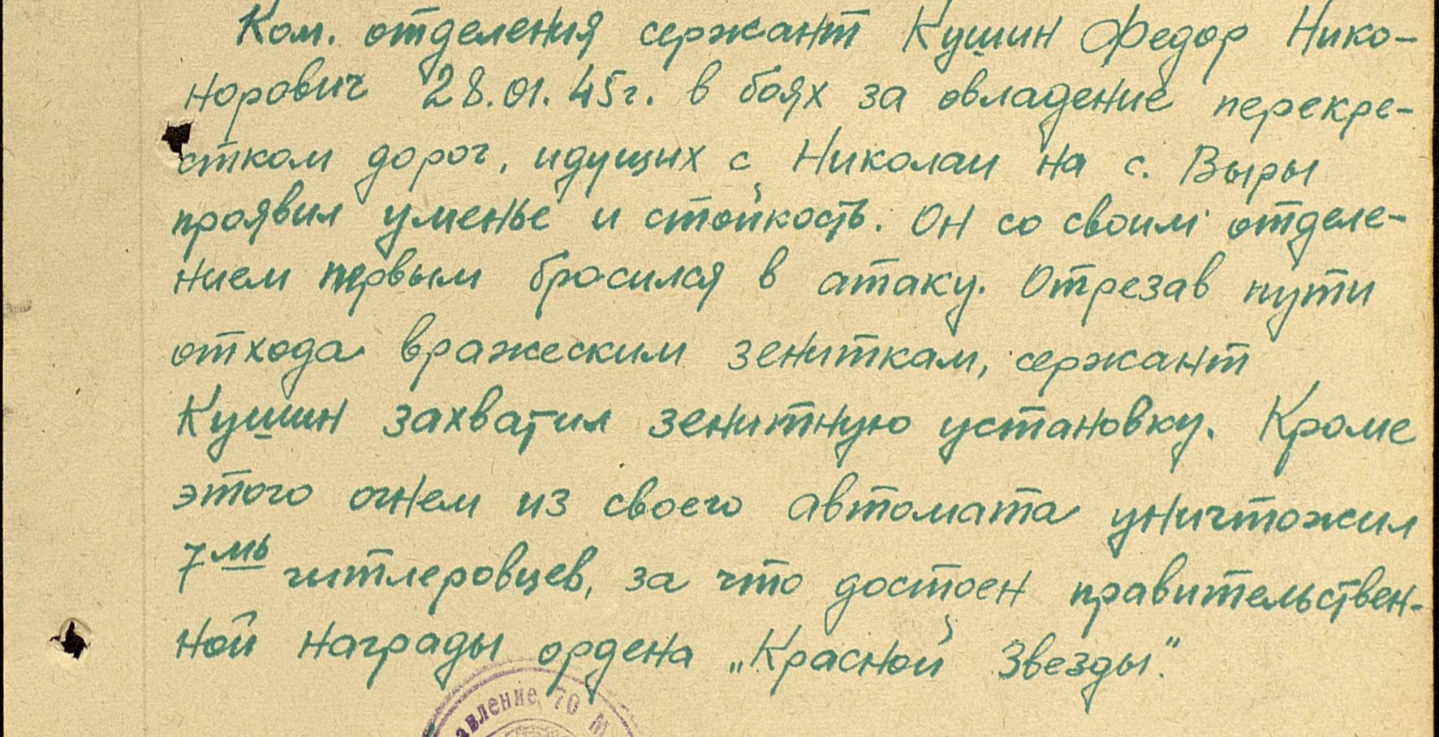 Ком. отделения сержант Кушин Федор Нико-
норович 28.01.45г. в боях за овладение перекре-
стком дорог, идущих с Николаи на с. Выры
проявил уменье и стойкость. Он со своим отделе-
нием первым бросился в атаку. Отрезав пути
отхода вражеским зениткам, сержант
Кушин захватил зенитную установку. Кроме
этого огнем из своего автомата уничтожил
7мь гитлеровцев, за что достоен правительствен-
ной награды ордена „Красной Звезды".
авление 70 М